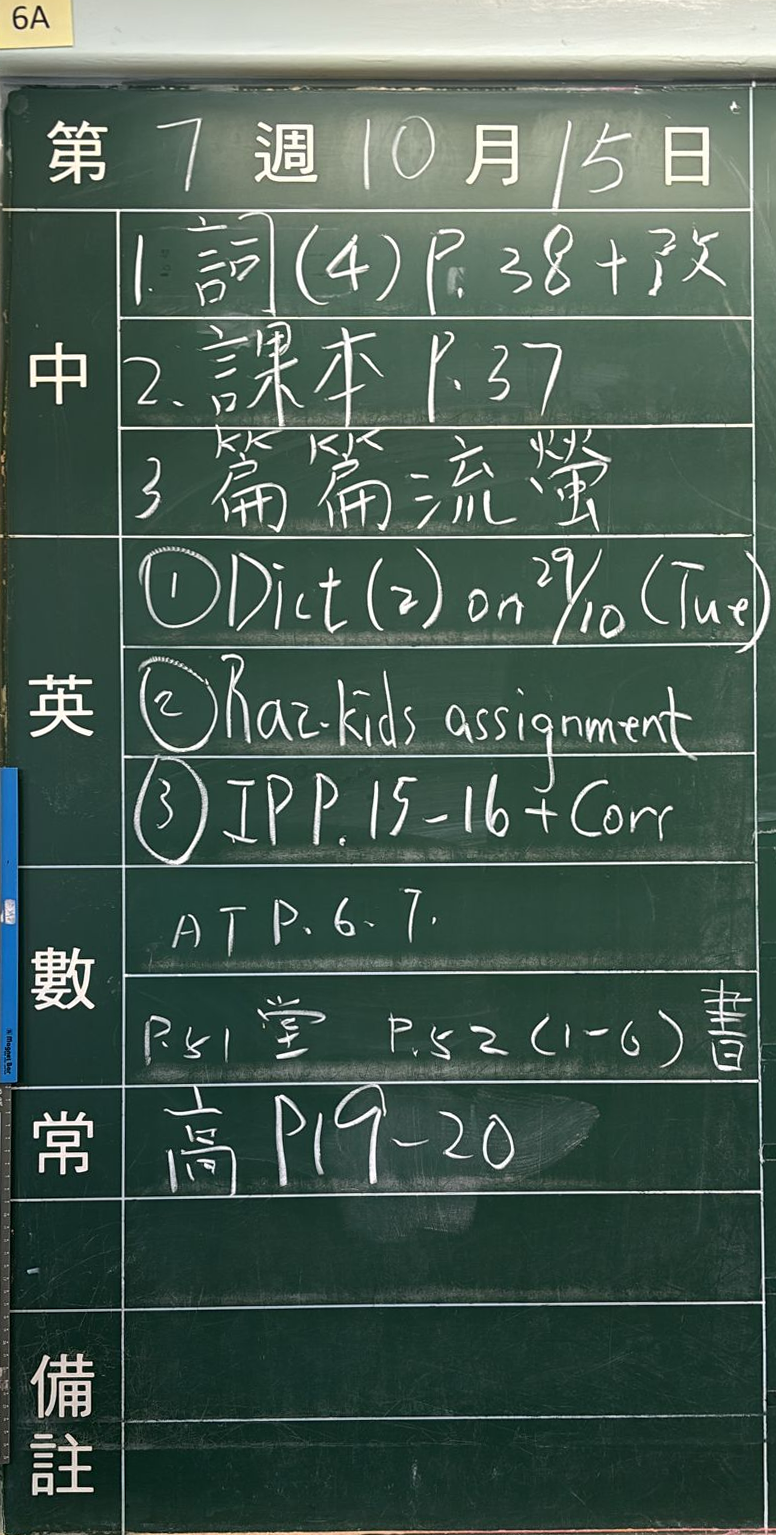 6A
第 7 週 10 月 15 日
中
1. 詞(4) P. 38 + 改
2. 課本 P. 37
3 篇篇流螢
英
① Dict (2) on 29/10 (Tue)
② Raz-kids assignment
③ IP P. 15-16 + Corr
數
AT P. 6. 7.
P.51 堂 P.52 (1-6) 書
常
高 P19-20
備註